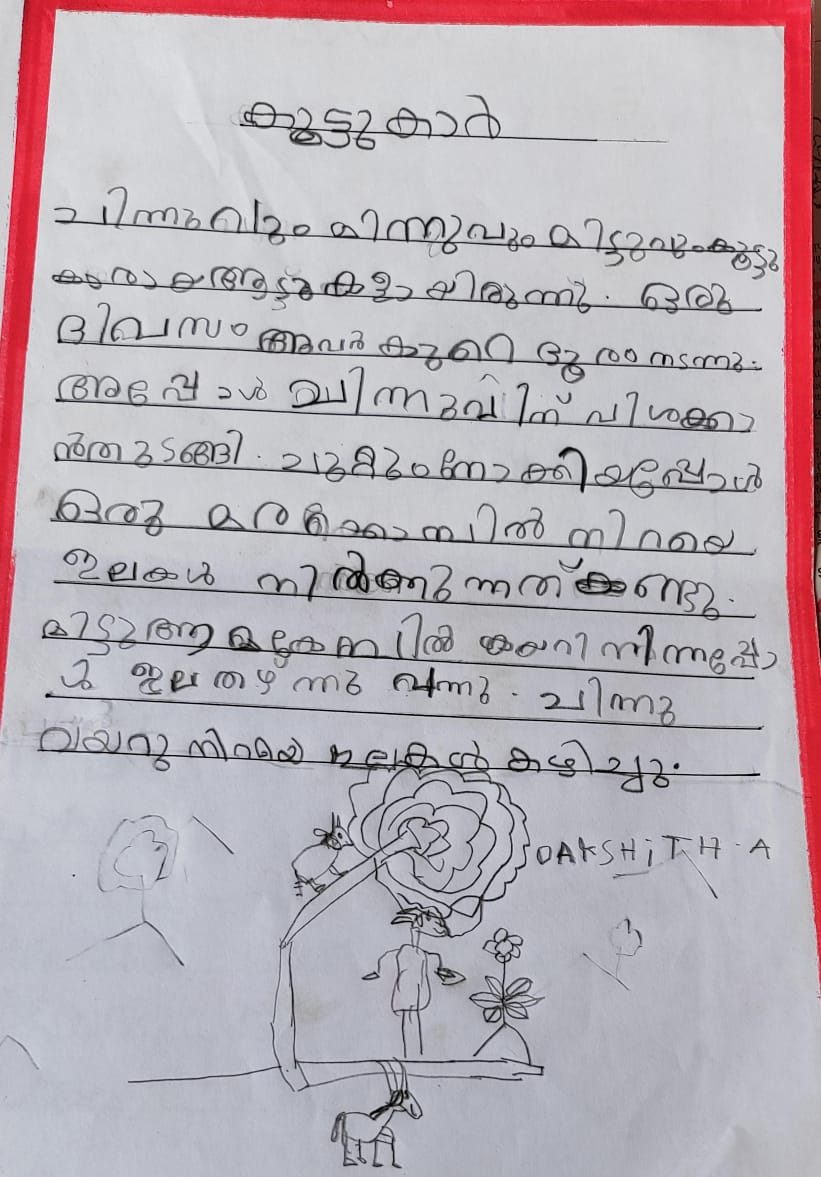 കൂട്ടുകാർ
ചിന്നുവും മിന്നുവും കിട്ടുവും കൂട്ടു
കാരായ ആടുകളായിരുന്നു. ഒരു
ദിവസം അവർ കുറെ ദൂരം നടന്നു.
അപ്പോൾ ചിന്നുവിന് വിശക്കാ
ൻ തുടങ്ങി. ചുറ്റും നോക്കിയപ്പോൾ
ഒരു മരക്കൊമ്പിൽ നിറയെ
ഇലകൾ നിൽക്കുന്നത് കണ്ടു.
കിട്ടു ആ കൊമ്പിൽ കയറി നിന്നപ്പോ
ൾ ഇല താഴ്ന്നു വന്നു. ചിന്നു
വയറു നിറയെ ഇലകൾ കഴിച്ചു.
DAKSHiTH. A